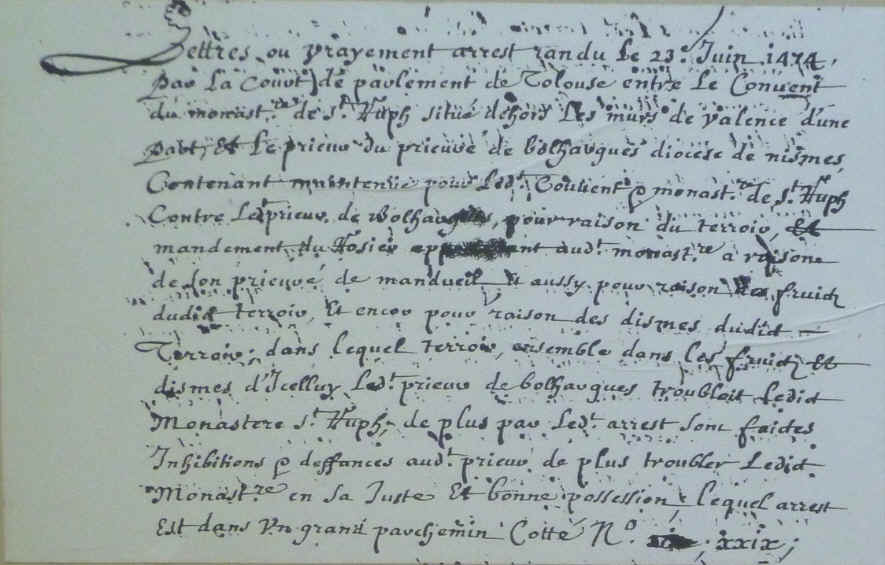 Lettres ou vrayement arrest randu le 23e Juin 1474,
Par la Court de parlement de Tolouse entre le Convent
du monastre de st Ruph situé dehors les murs de valence d'une
Part, Et le prieur du prieuré de bolhargues diocese de nismes,
Contenant maintenue pour Ledt Couvent & monastre de st Ruph
Contre Ledt prieur de bolhargues, pour raison du terroir, Et
mandement du Rosier appartenant audt monastre a raison
de son prieuré de mandueil Et aussy pour raison des fruicts
dudict terroir, Et encor pour raison des dismes dudict
Terroir; dans lequel terroir, ensemble dans les fruicts Et
dismes d'Icelluy Ledt prieur de bolhargues troubloit Ledict
Monastere st Ruph, de plus par Ledt arrest sont faictes
Inhibitions & deffances audt prieur de plus troubler Ledict
Monastre en sa Juste Et bonne possession, lequel arrest
Est dans Un grand parchemin Cotté No. xxix;